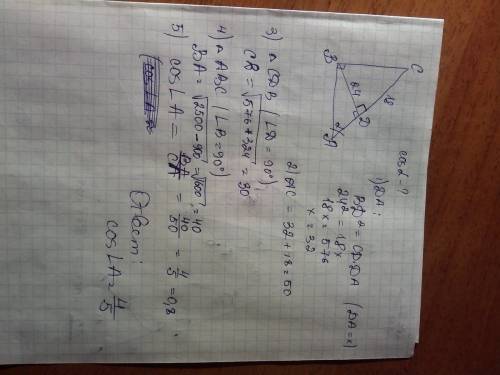 C
B
18
24
D
A
α
cos α - ?
1) DA:
BD² = CD·DA (DA=x)
24² = 18x
18x = 576
x = 32
2) AC = 32 + 18 = 50
3) △ CDB (∠D = 90°)
CB = √576+324 = 30
4) △ ABC (∠B = 90°)
BA = √2500-900 = √1600 = 40
5) cos∠A = BA/CA = 40/50 = 4/5 = 0,8
Ответ:
cos∠A = 4/5